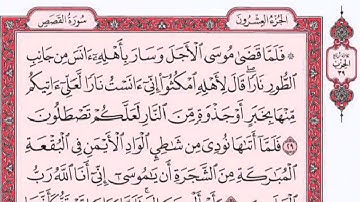 سُورَةُ القَصَصِ
الجُزْءُ العِشْرُونَ
۞ فَلَمَّا قَضَىٰ مُوسَى ٱلْأَجَلَ وَسَارَ بِأَهْلِهِۦٓ ءَانَسَ مِن جَانِبِ
ٱلطُّورِ نَارًا قَالَ لِأَهْلِهِ ٱمْكُثُوٓا۟ إِنِّىٓ ءَانَسْتُ نَارًا لَّعَلِّىٓ ءَاتِيكُم
مِّنْهَا بِخَبَرٍ أَوْ جَذْوَةٍ مِّنَ ٱلنَّارِ لَعَلَّكُمْ تَصْطَلُونَ
٢٩ فَلَمَّآ أَتَىٰهَا نُودِىَ مِن شَٰطِئِ ٱلْوَادِ ٱلْأَيْمَنِ فِى ٱلْبُقْعَةِ
ٱلْمُبَٰرَكَةِ مِنَ ٱلشَّجَرَةِ أَن يَٰمُوسَىٰٓ إِنِّىٓ أَنَا ٱللَّهُ رَبُّ
الحزب
٣٩